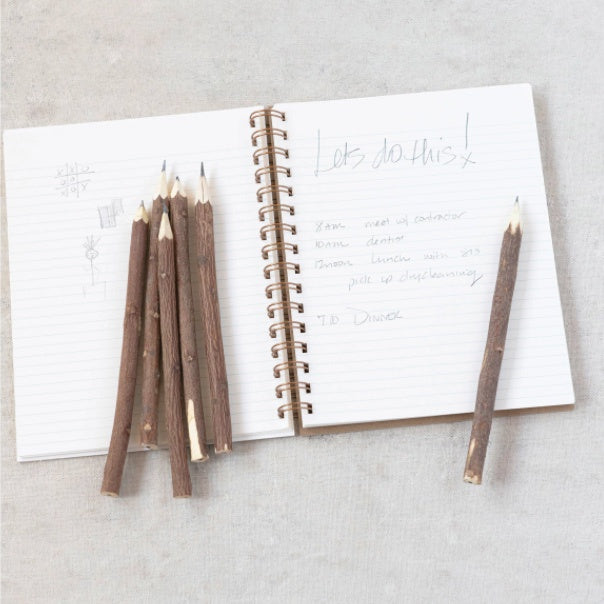 X X O
O O X
X O X
Lets do this! x
8 AM meet w/ contractor
10 AM dentist
12 noon lunch with sis
pick up drycleaning
DINNER